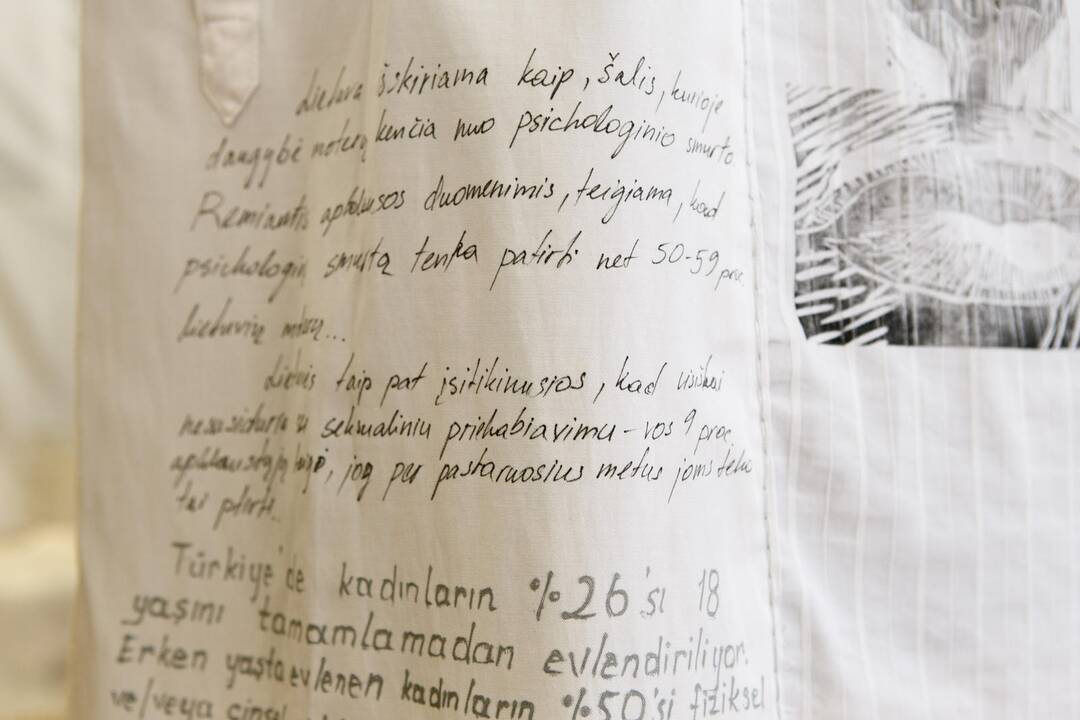 Lietuva išskiriama kaip, šalis, kurioje
daugybė moterų kenčia nuo psichologinio smurto.
Remiantis apklausos duomenimis, teigiama, kad
psichologinį smurtą tenka patirti net 50-59 proc.
lietuvių
taip pat įsitikinusios, kad visiškai
seksualiniu priekabiavimu - vos 9 proc.
jog per pastaruosius metus joms teko
Türkiye'de kadınların %26'sı 18
yaşını tamamlamadan evlendiriliyor.
Erken yaşta evlenen kadınların %50'si fiziksel
ve/veya cinsel